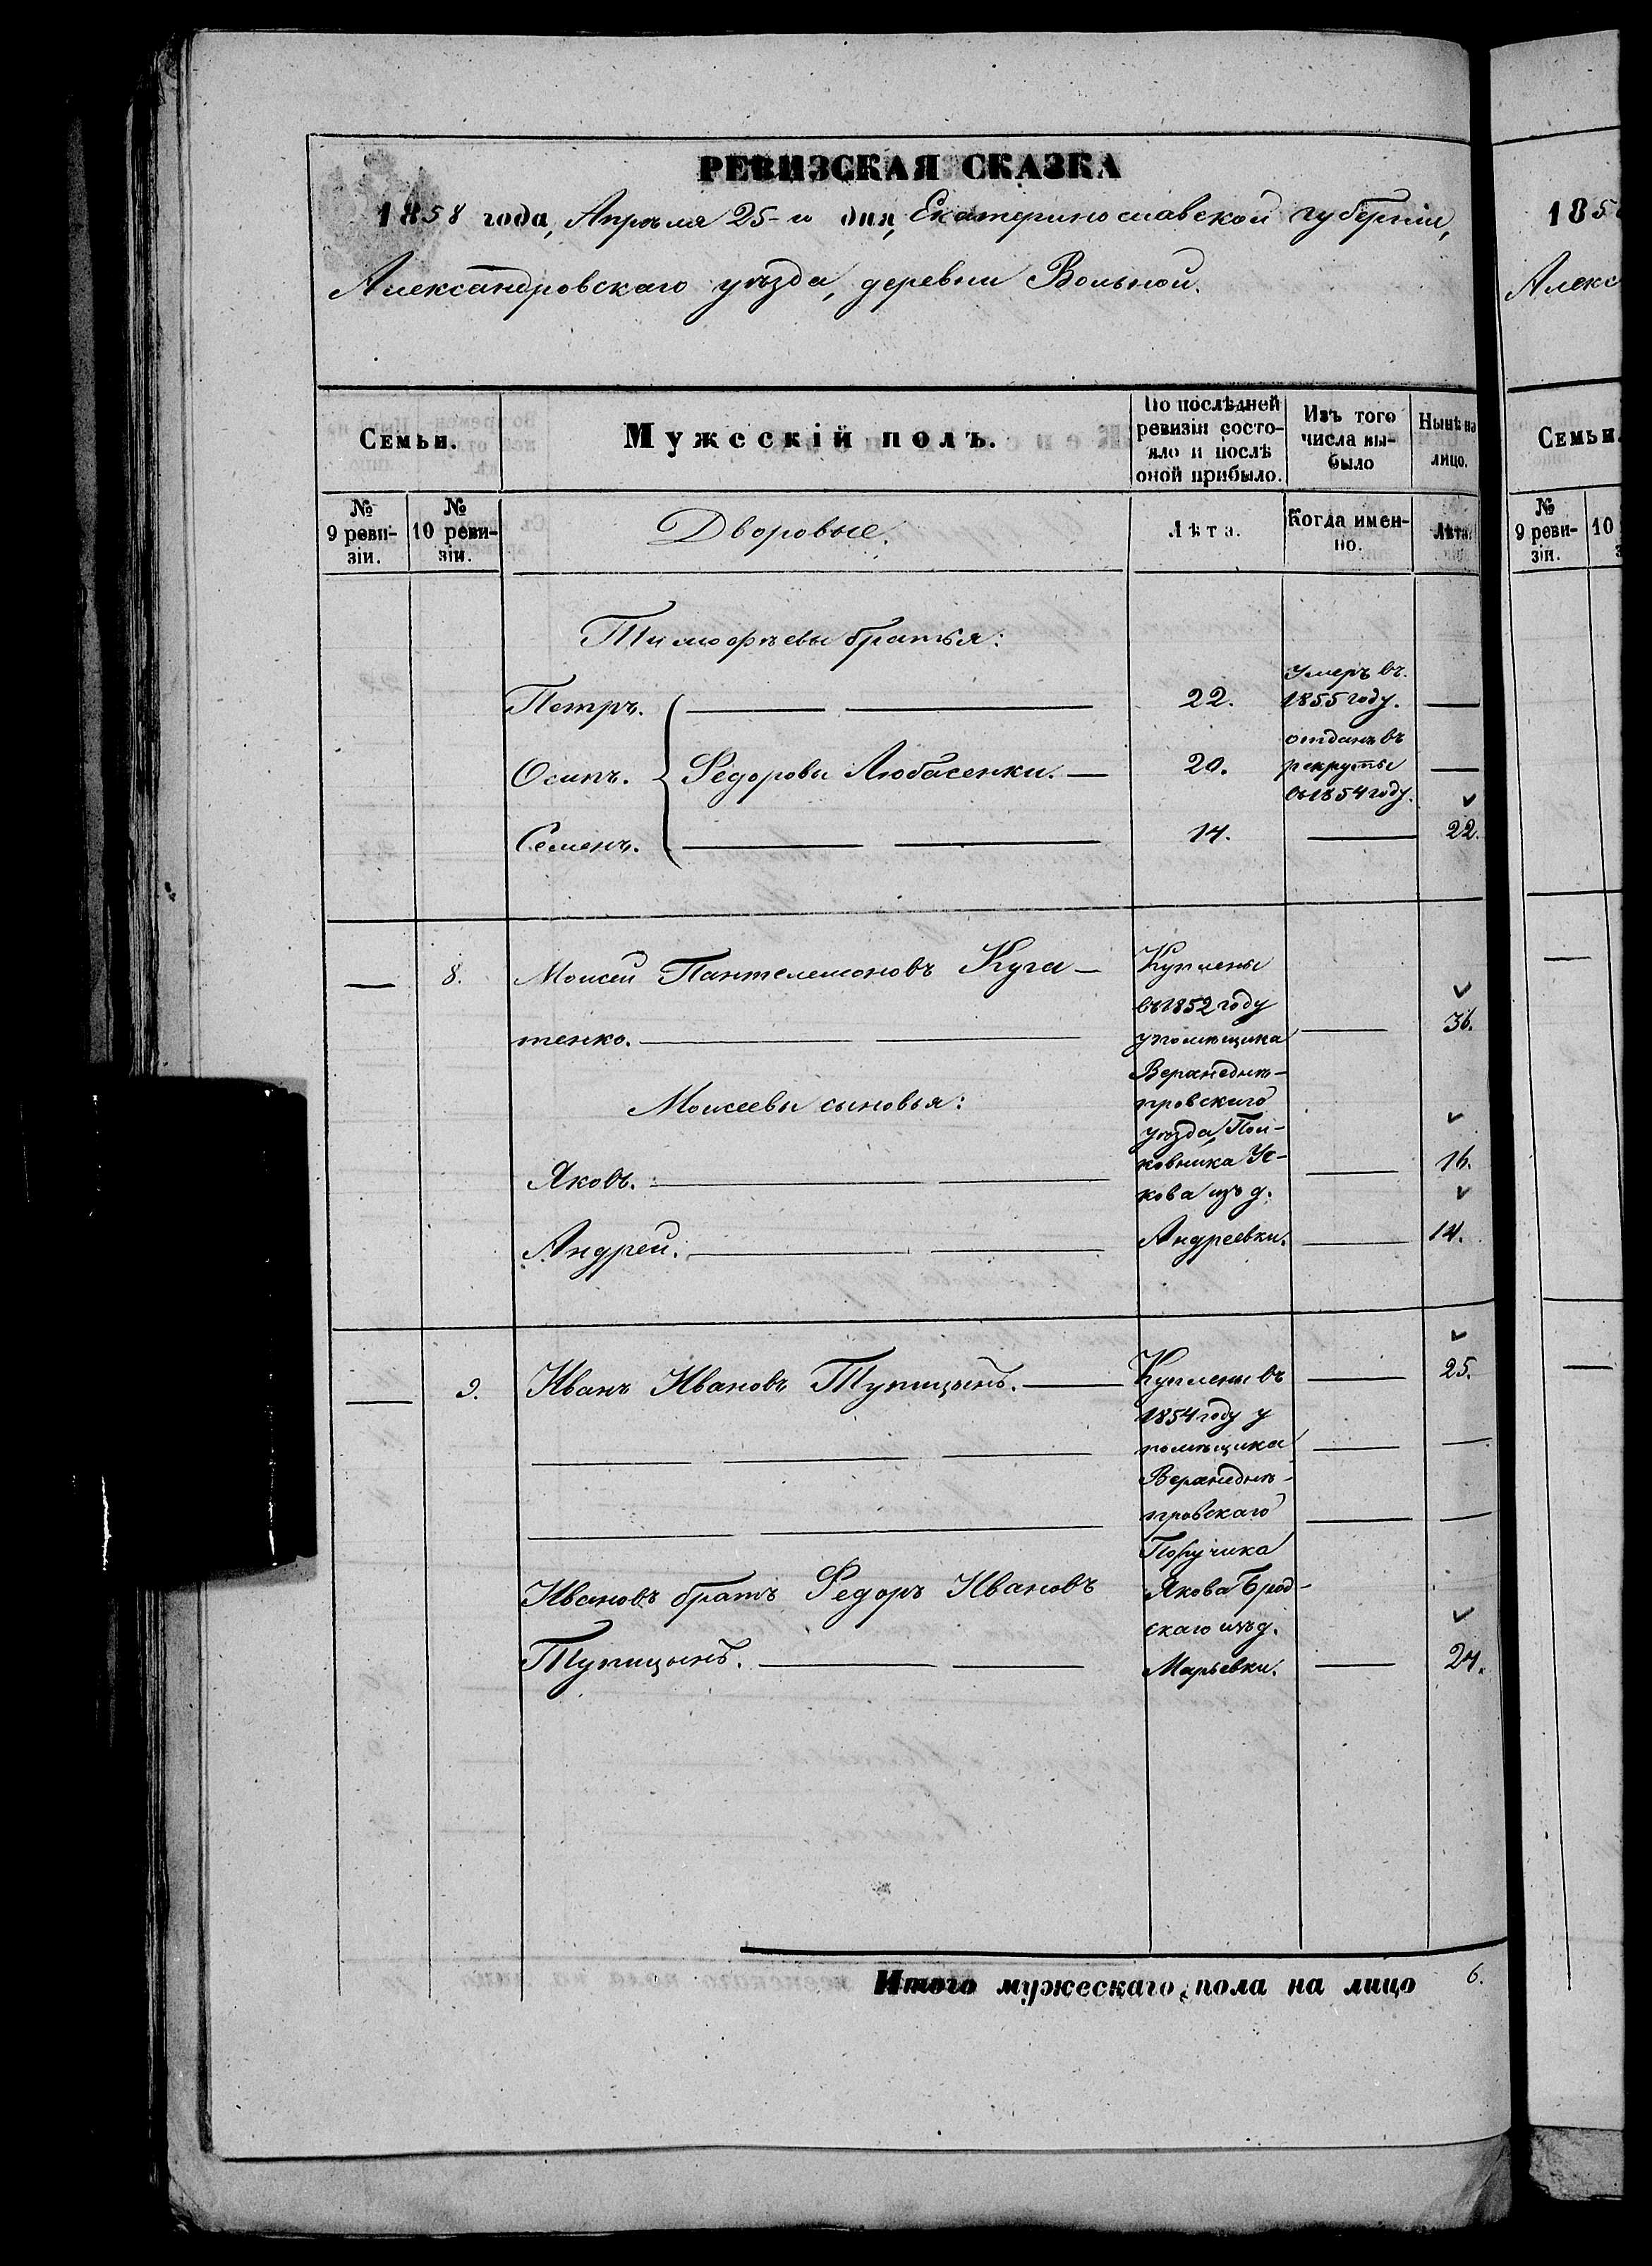 РЕВИЗСКАЯ СКАЗКА
1858 года, Апрѣля 25-го дня, Екатеринославской губерніи,
Александровскаго уѣзда, деревни Вольной.
185
Алекс
Семьи.
Мужескій полъ.
По послѣдней
ревизіи состо-
яло и послѣ
оной прибыло.
Изъ того
числа вы-
было
Нынѣ на
лицо.
Семьи.
№
9 реви-
зіи.
№
10 реви-
зіи.
Дворовые.
Лѣта.
Когда имен-
но.
Лѣта.
№
9 реви-
зіи.
10
Тимофѣевы братья:
Петръ. 22. Умеръ въ
1855 году.
Осипъ. Федоровы Любасенки. 20. отданъ въ
рекруты
въ 1854 году.
Семенъ. 14. 22.
8. Моисей Пантелемоновъ Куча-
тенко. 36.
Куплены
въ 1852 году
у помѣщика
Верхнеднѣ-
провскаго
уѣзда, Пол-
ковника Ус-
кова изъ д.
Андреевки.
Моисеевы сыновья:
Яковъ. 16.
Андрей. 14.
9. Иванъ Ивановъ Тупицынъ. 25.
Куплены въ
1854 году у
помѣщика
Верхнеднѣ-
провскаго
Поручика
Якова Брод-
скаго изъ д.
Марьевки.
Ивановъ братъ Федоръ Ивановъ
Тупицынъ. 24.
Итого мужескаго пола на лицо 6.